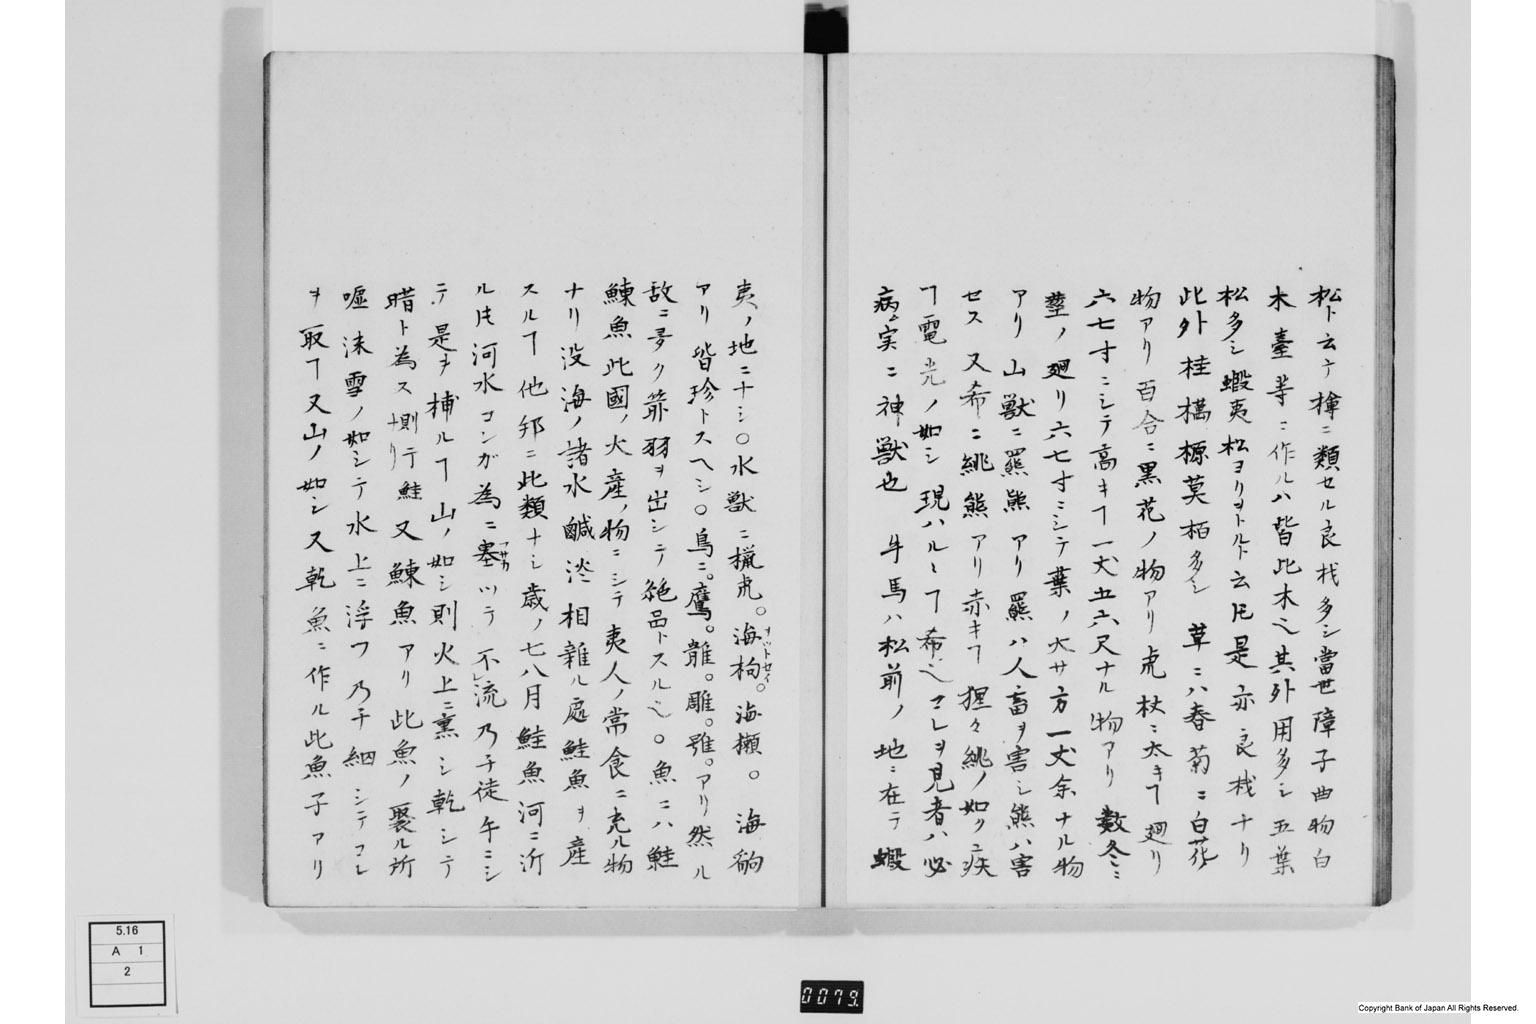 松ト云テ檊ニ類セル良材多シ當世障子曲物白
木臺等ニ作ルハ皆此木也其外用多シ五葉
松多シ蝦夷松ヨリヲトルト云𪜈是亦良材ナリ
此外桂檞榞莫栢多シ 草ニハ春菊ニ白花
物アリ百合ニ黒花ノ物アリ虎杖ニ太キヿ廻リ
六七寸ニシテ高キヿ一丈五六尺ナル物アリ 數冬ニ
莖ノ廻リ六七寸ニシテ葉ノ大サ方一丈余ナル物
アリ 山獣ニ羆熊アリ羆ハ人畜ヲ害シ熊ハ害
セス 又希ニ絩熊アリ赤キヿ 猩々絩ノ如クニ疾
ヿ電光ノ如シ 現ハルヽヿ希也コレヲ見者ハ必
病ム実ニ神獣也 牛馬ハ松前ノ地ニ在テ 蝦
夷ノ地ニナシ〇水獣ニ獵虎。海狗。海獺。海豹
オットセイ
アリ皆珍トスヘシ〇鳥ニ。鷹。鶻。鵰。鶚。アリ然ル
故ニ多ク箭羽ヲ出シテ絶品トスル也〇魚ニハ鮭
鰊魚此國ノ大産ノ物ニシテ夷人ノ常食ニ充ル物
ナリ没海ノ諸水鹹淡相雜ル處鮭魚ヲ産
スルヿ他邦ニ此類ナシ歳ノ七八月鮭魚河ニ泝
ル𪜈河水コンガ為ニ塞ツテ不レ流乃チ徒午ニシ
フサカ
テ是ヲ捕ルヿ山ノ如シ則火上ニ熏シ乾シテ
腊ト為ス則ナリテ鮭又鰊魚アリ此魚ノ聚ル所
嘘沫雪ノ如シテ水上ニ浮フ乃チ網シテコレ
ヲ取ヿ又山ノ如シ又乾魚ニ作ル此魚子アリ
5.16
A 1
2
0079.
Copyright Bank of Japan All Rights Reserved.